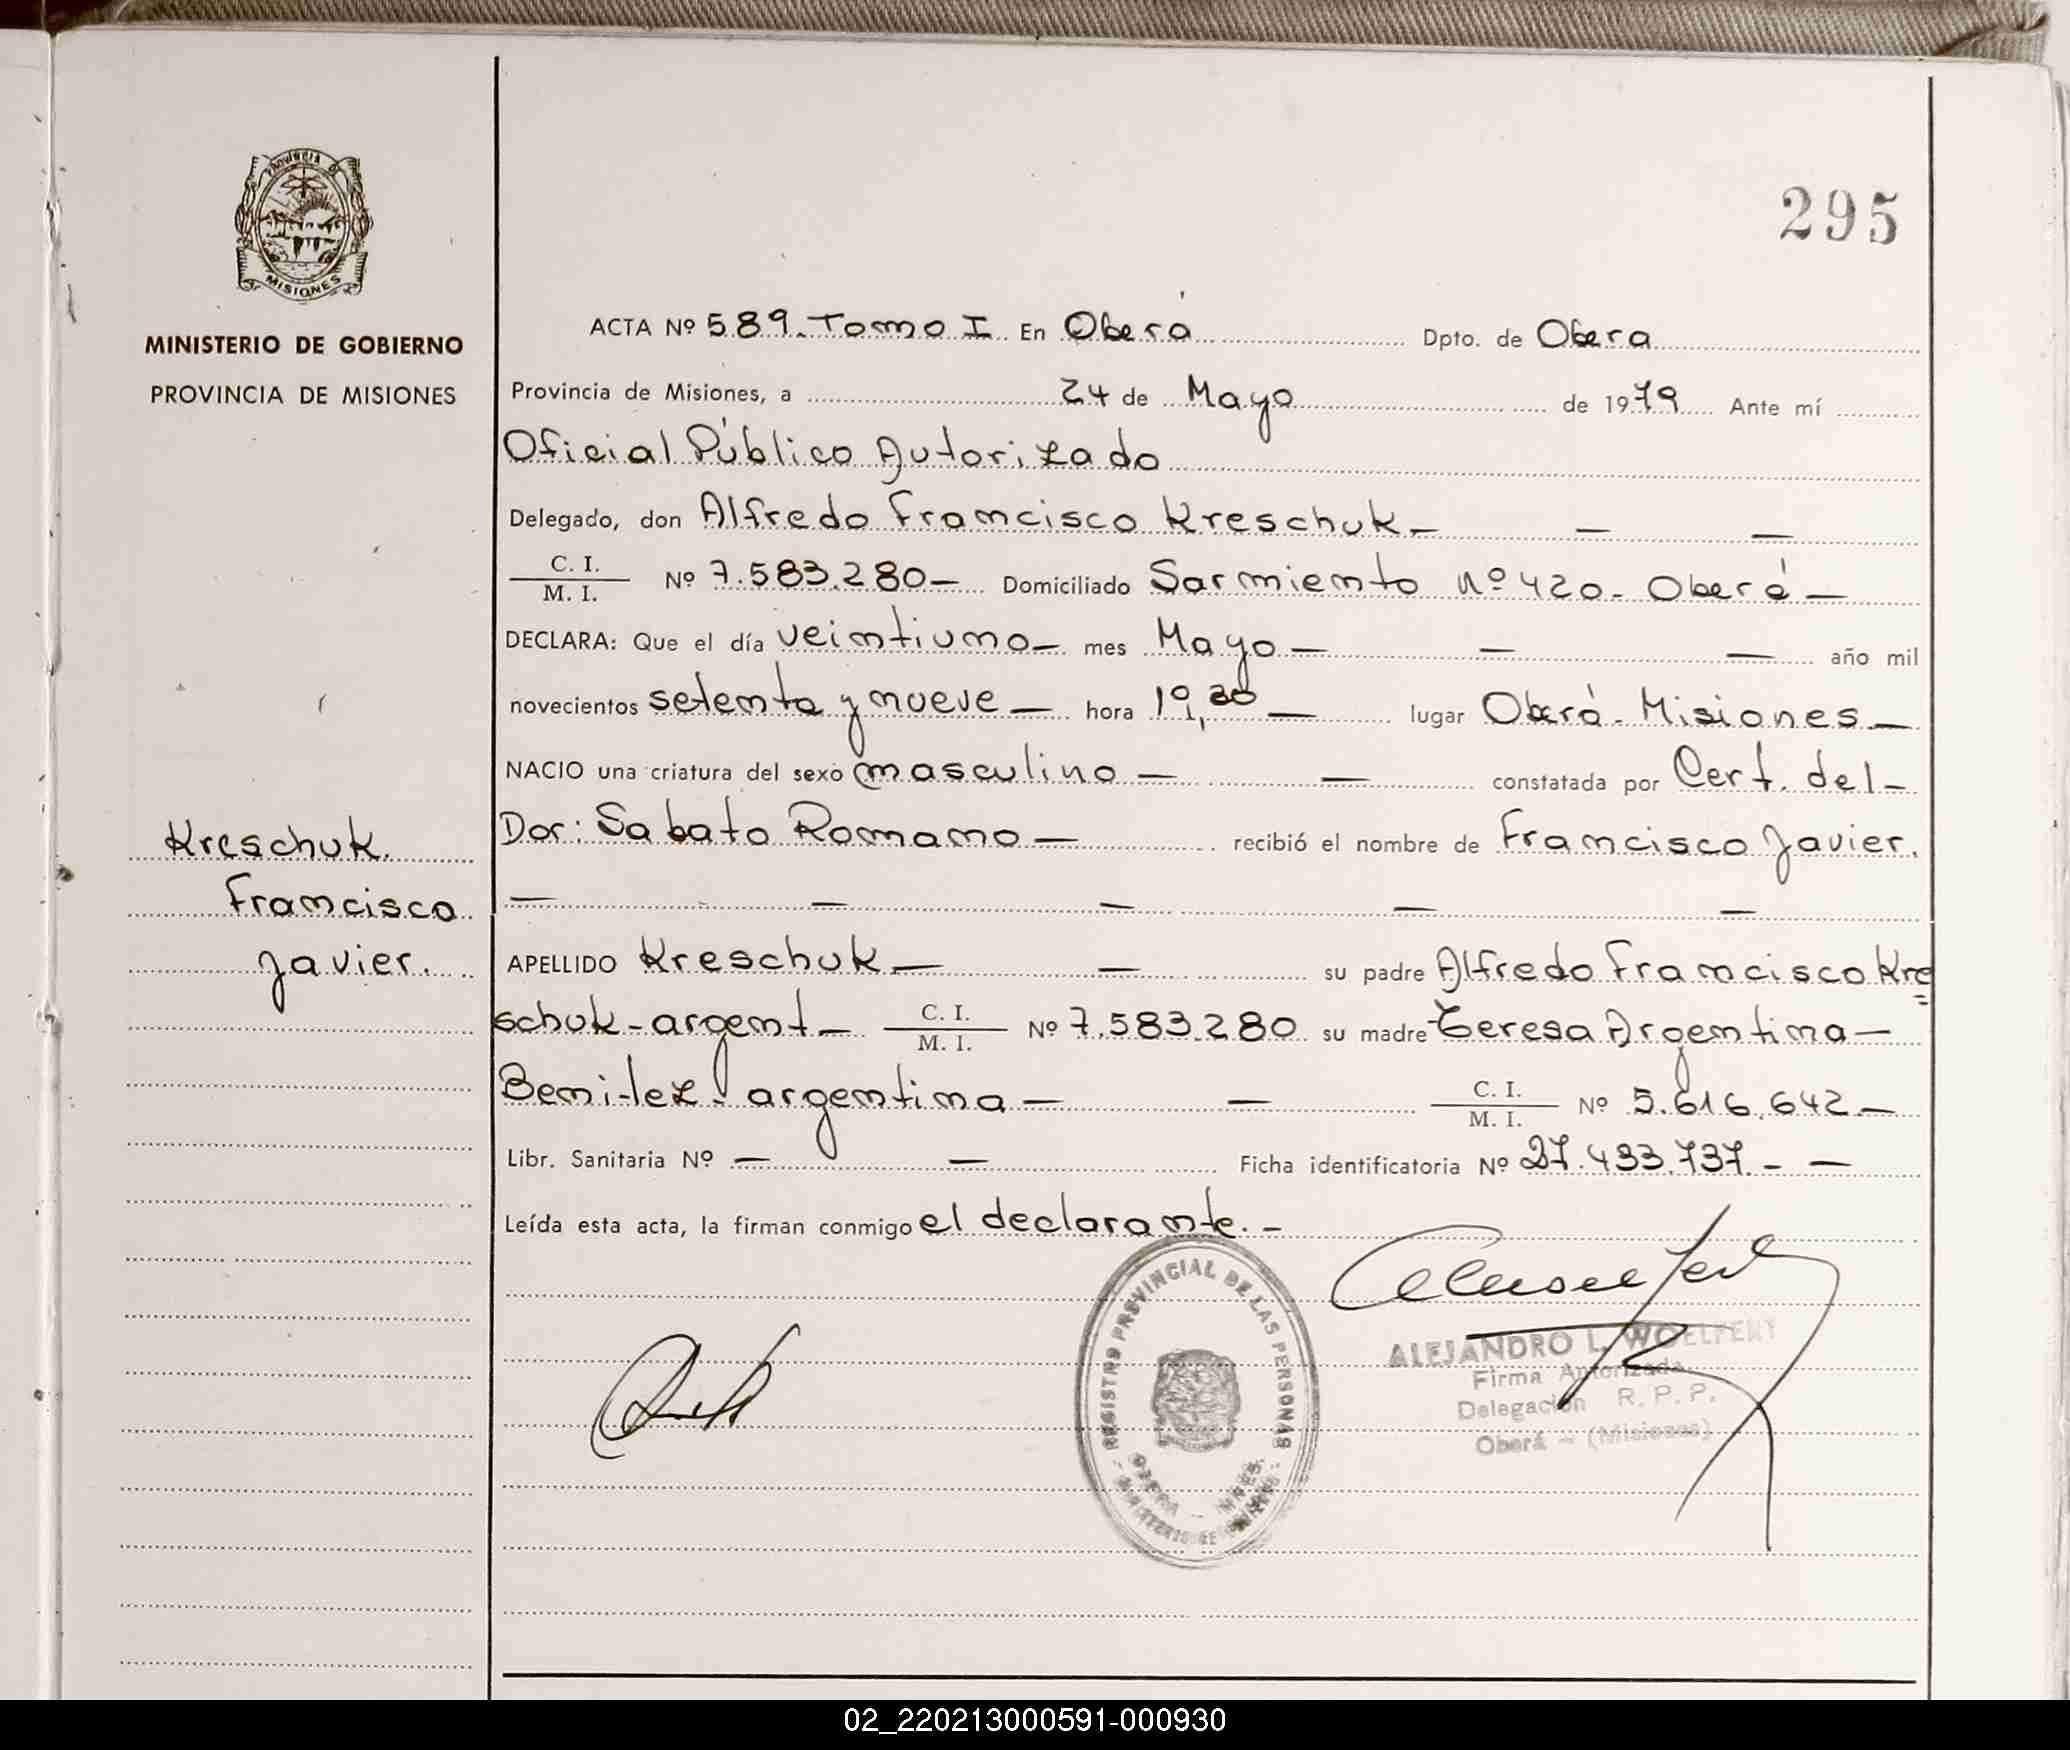 295
PROVINCIA DE
MISIONES
MINISTERIO DE GOBIERNO
PROVINCIA DE MISIONES
ACTA Nº 589. Tomo I En Oberá Dpto. de Obera
Provincia de Misiones, a 24 de Mayo de 1979 Ante mí
Oficial Público Autorizado
Delegado, don Alfredo Francisco Kreschuk — — —
C. I. / M. I. Nº 7.583.280 — Domiciliado Sarmiento Nº 420 - Oberá —
DECLARA: Que el día veintiuno — mes Mayo — — — año mil
novecientos setenta y nueve — hora lugar Oberá - Misiones —
NACIO una criatura del sexo masculino — — constatada por Cert. del —
Dor: Sabato Romano — recibió el nombre de Francisco Javier.
— — — — —
Kreschuk.
Francisco
Javier.
APELLIDO Kreschuk — — su padre Alfredo Francisco Kre=
schuk - argent — C. I. / M. I. Nº 7.583.280 su madre Teresa Argentina —
Benitez - argentina — — C. I. / M. I. Nº 5.616.642 —
Libr. Sanitaria Nº — — Ficha identificatoria Nº 27.433.737 - —
Leída esta acta, la firman conmigo el declarante. -
REGISTRO PROVINCIAL DE LAS PERSONAS
ALEJANDRO L. WOELFERT
Firma Autorizada
Delegación R. P. P.
Oberá - (Misiones)
02_220213000591-000930